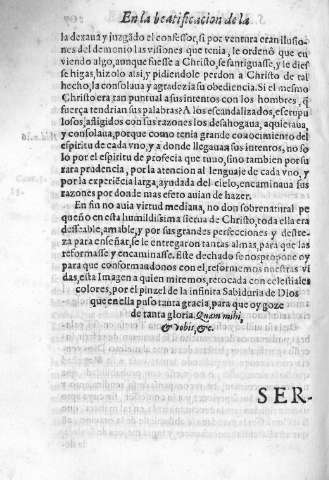 En la beatificacion de la
la dexaua y juzgado el confessor, si por ventura eran ilusio-
nes del demonio las visiones que tenia, le ordenò que en
viendo algo, aunque fuesse a Christo, se santiguasse, y le dies
se higas, hizolo assi, y pidiendole perdon a Christo de tal
hecho, la consolaua y agradezia su obediencia. Si el mesmo
Christo era tan puntual a sus intentos con los hombres, q̃
fuerça tendrian sus palabras? A los escandalizados, escrupu
losos, afligidos con sus razones los desahogaua, aquietaua,
y consolaua, porque como tenia grande conocimiento del
espiritu de cada vno, y a donde llegauã sus intentos, no so
lo por el espiritu de profecia que tuuo, sino tambien por su
rara prudencia, por la atencion al lenguaje de cada vno, y
por la experiẽcia larga, ayudada del cielo, encaminaua sus
razones por donde mas efeto auian de hazer.
En fin no auia virtud mediana, no don sobrenatural pe
queño en esta humildissima sierua de Christo, toda ella era
desseable, amable, y por sus grandes perfecciones y destre-
za para enseñar, se le entregaron tantas almas, para que las
reformasse y encaminasse. Este dechado se nos propone oy
para que conformandonos con el, reformemos nuestras vi
das, esta Imagen a quien miremos, retocada con celestiales
colores, por el pinzel de la infinita Sabiduria de Dios
que en ella puso tanta gracia, para que oy goze
de tanta gloria. Quam mihi,
& vobis, &c.
SER-